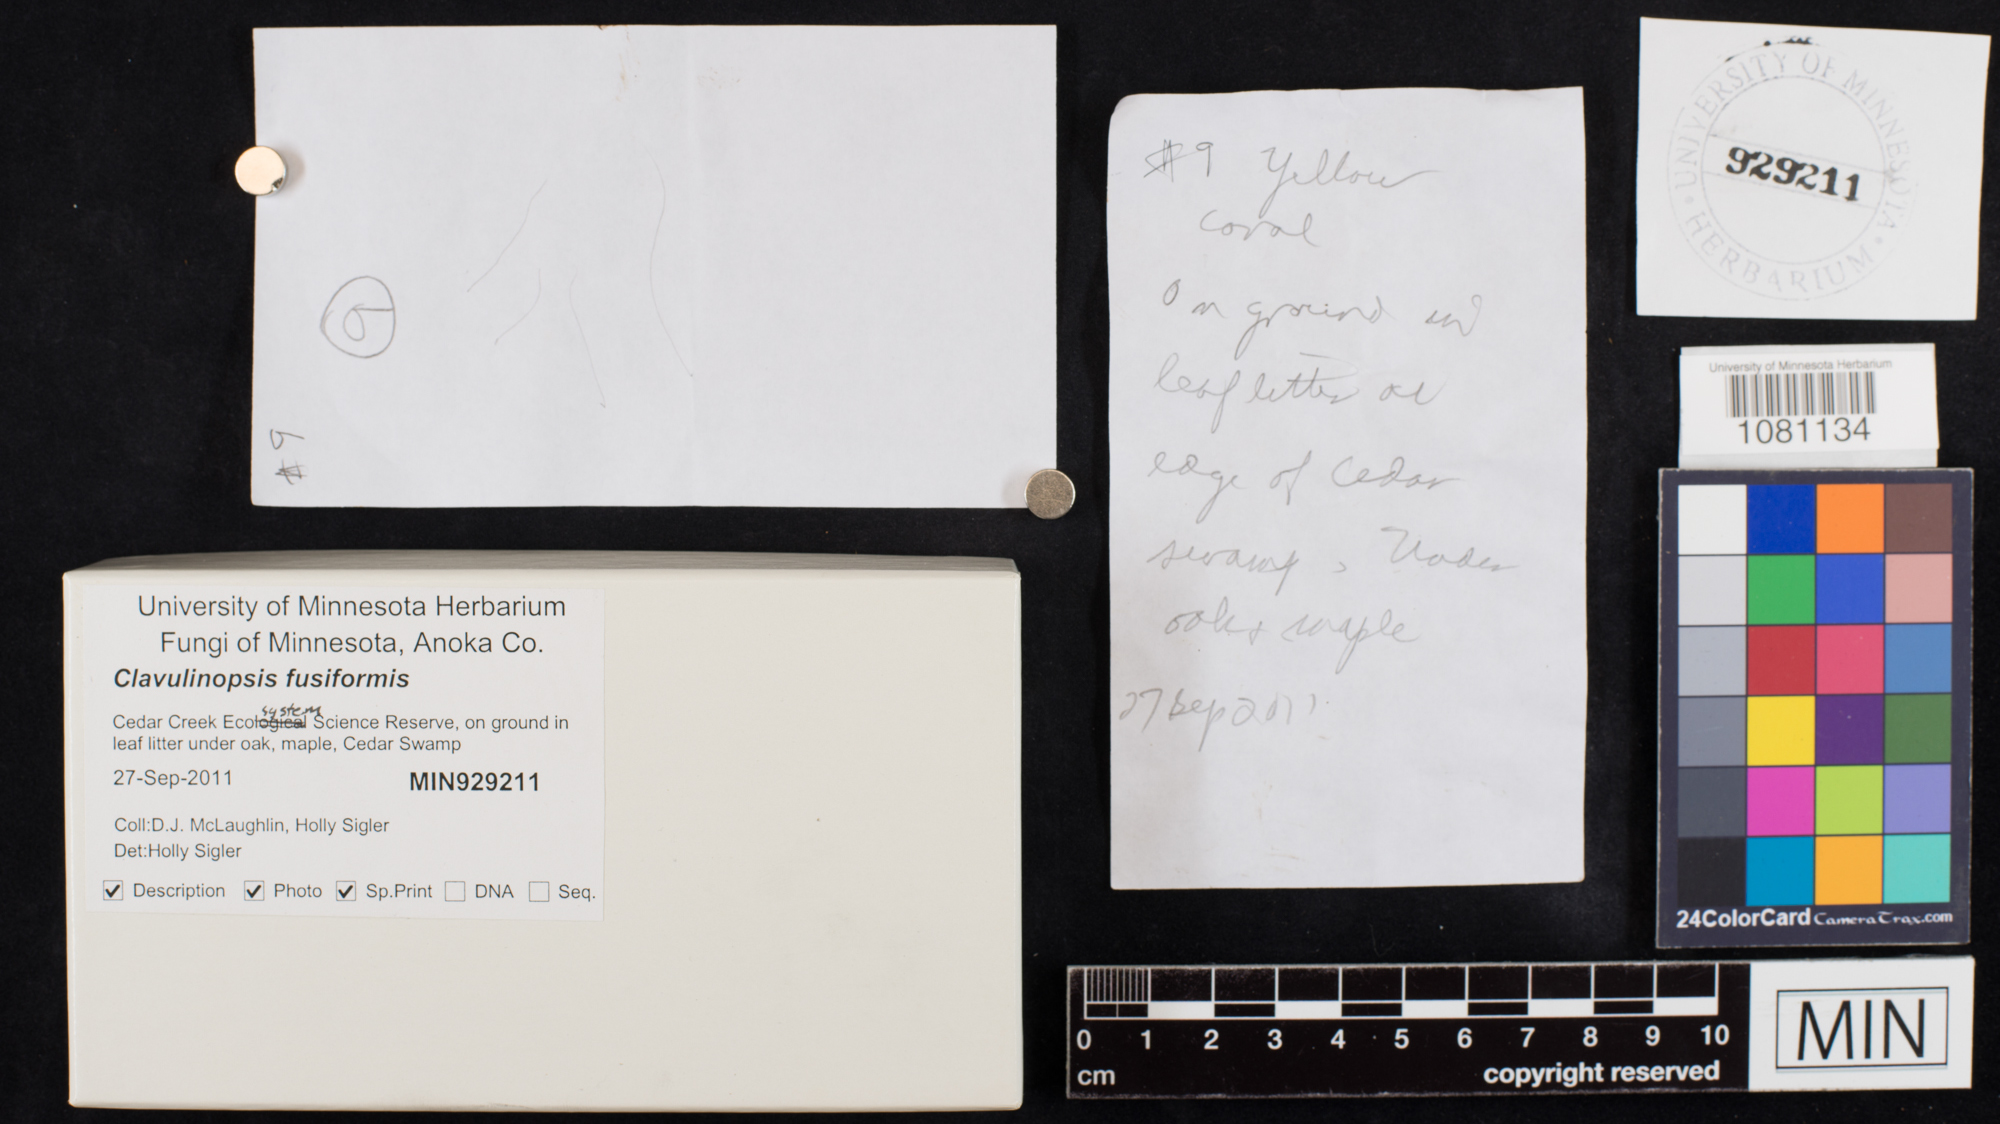 9
#9
#9 Yellow
coral
On ground in
leaf litter at
edge of Cedar
swamp, Under
oak, maple
27 Sep 2011
UNIVERSITY OF MINNESOTA
929211
HERBARIUM
University of Minnesota Herbarium
1081134
University of Minnesota Herbarium
Fungi of Minnesota, Anoka Co.
Clavulinopsis fusiformis
system
Cedar Creek Ecological Science Reserve, on ground in
leaf litter under oak, maple, Cedar Swamp
27-Sep-2011 MIN929211
Coll:D.J. McLaughlin, Holly Sigler
Det:Holly Sigler
Description Photo Sp.Print DNA Seq.
24ColorCard CameraTrax.com
0 1 2 3 4 5 6 7 8 9 10
cm copyright reserved
MIN